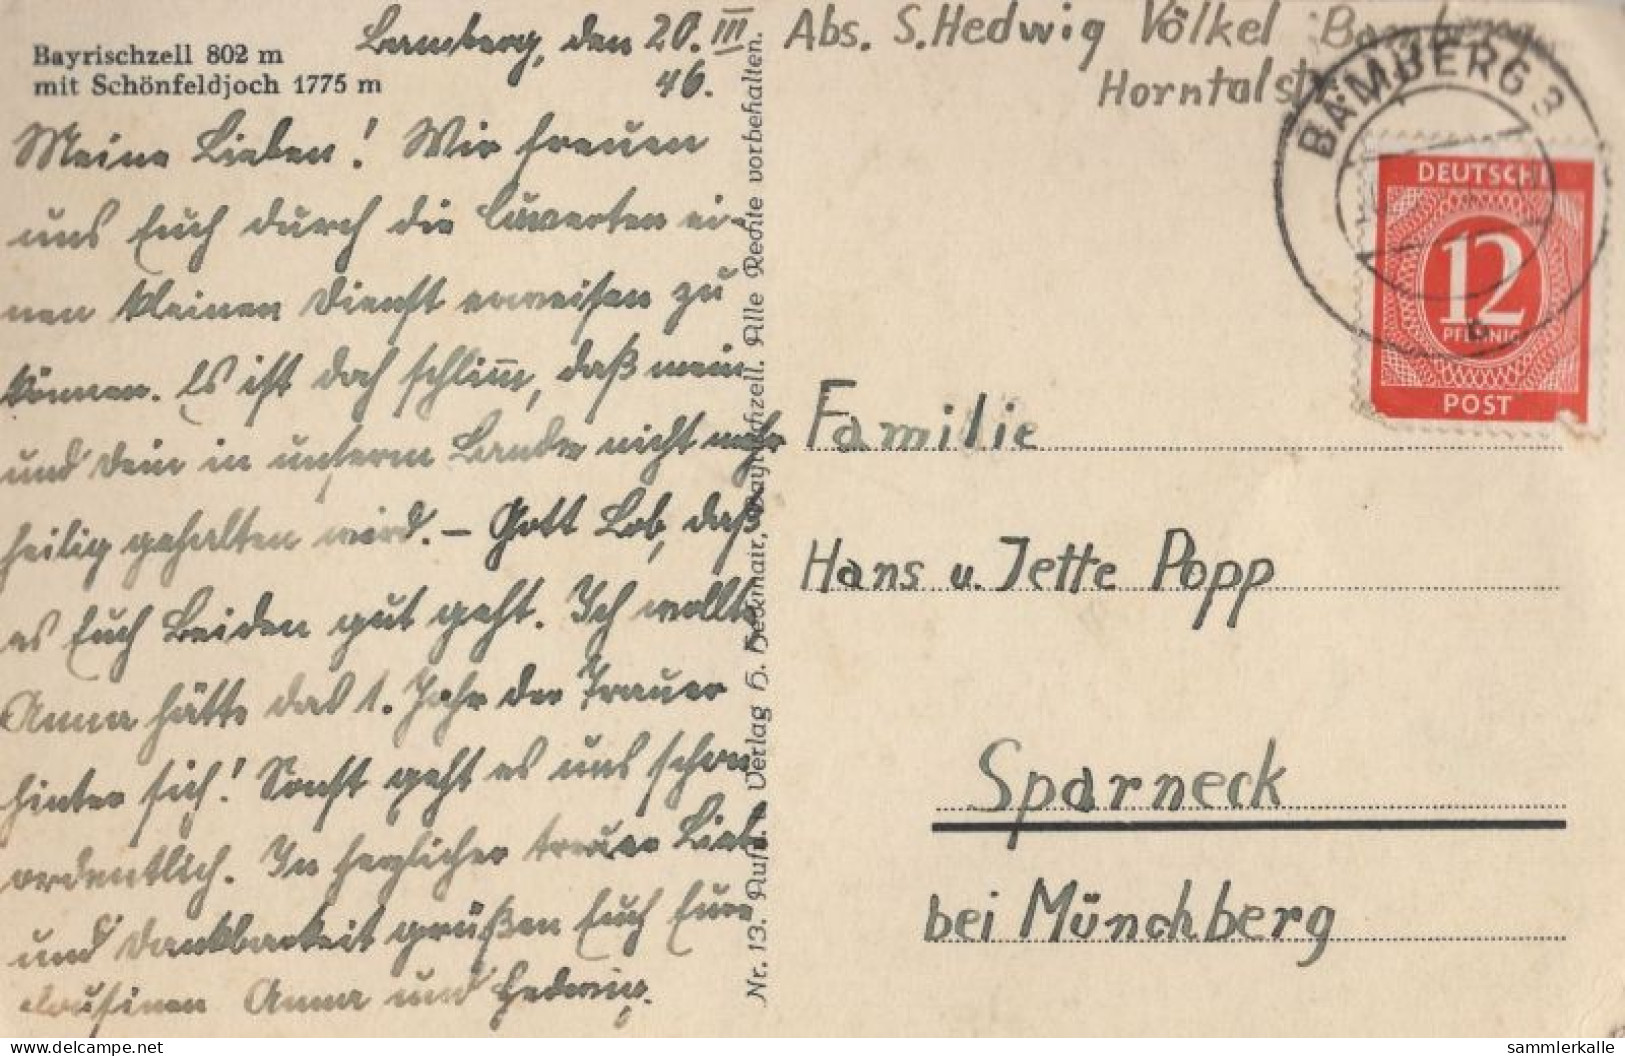 Bayrischzell 802 m
mit Schönfeldjoch 1775 m
Bamberg, den 20. III
46.
Meine Lieben! Wir freuen
uns Euch durch die Cuverten ei-
nen kleinen Dienst erweisen zu
können. Es ist doch schlimm, daß mein
und dein in unserm Lande nicht mehr
heilig gehalten wird. – Gott Lob, daß
es Euch Beiden gut geht. Ich wollte
Anna hätte das 1. Jahr der Trauer
hinter sich! Sonst geht es uns schon
ordentlich. In herzlicher treuer Liebe
und Dankbarkeit grüßen Euch Eure
Cousinen Anna und Hedwig.
Nr. 13. Aufn. u. Verlag H. Heckmair, Bayrischzell. Alle Rechte vorbehalten.
Abs. S. Hedwig Völkel Bamberg
Horntalstr.
BAMBERG 3
b
DEUTSCHE
12
PFENNIG
POST
Familie
Hans u. Jette Popp
Sparneck
bei Münchberg
www.delcampe.net
sammlerkalle